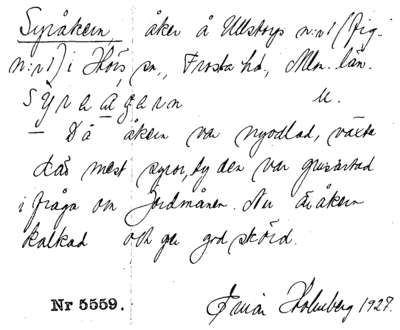 Syråkern, åker å Ullstorps n:r 1 (fig.
n:r 1) i Hörs sn., Frosta hd, Mlm. län.
Syra agarn U.
— Då åkern var nyodlad, växte
där mest syror, ty den var
i fråga om jordmånen. Nu är åkern
kalkad och ger god skörd.
Nr 5559. Holmberg 1927.